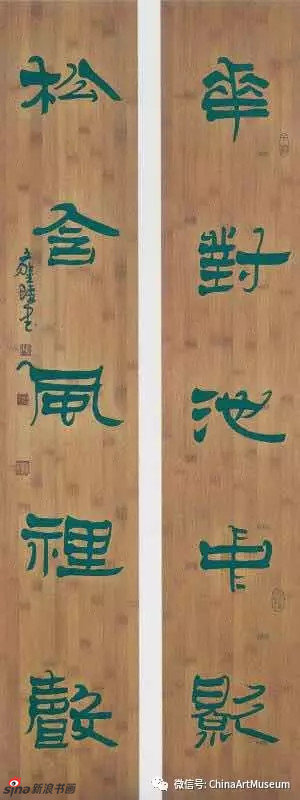 華對池中影
松含風裡聲
sina新浪书画
微信号: ChinaArtMuseum